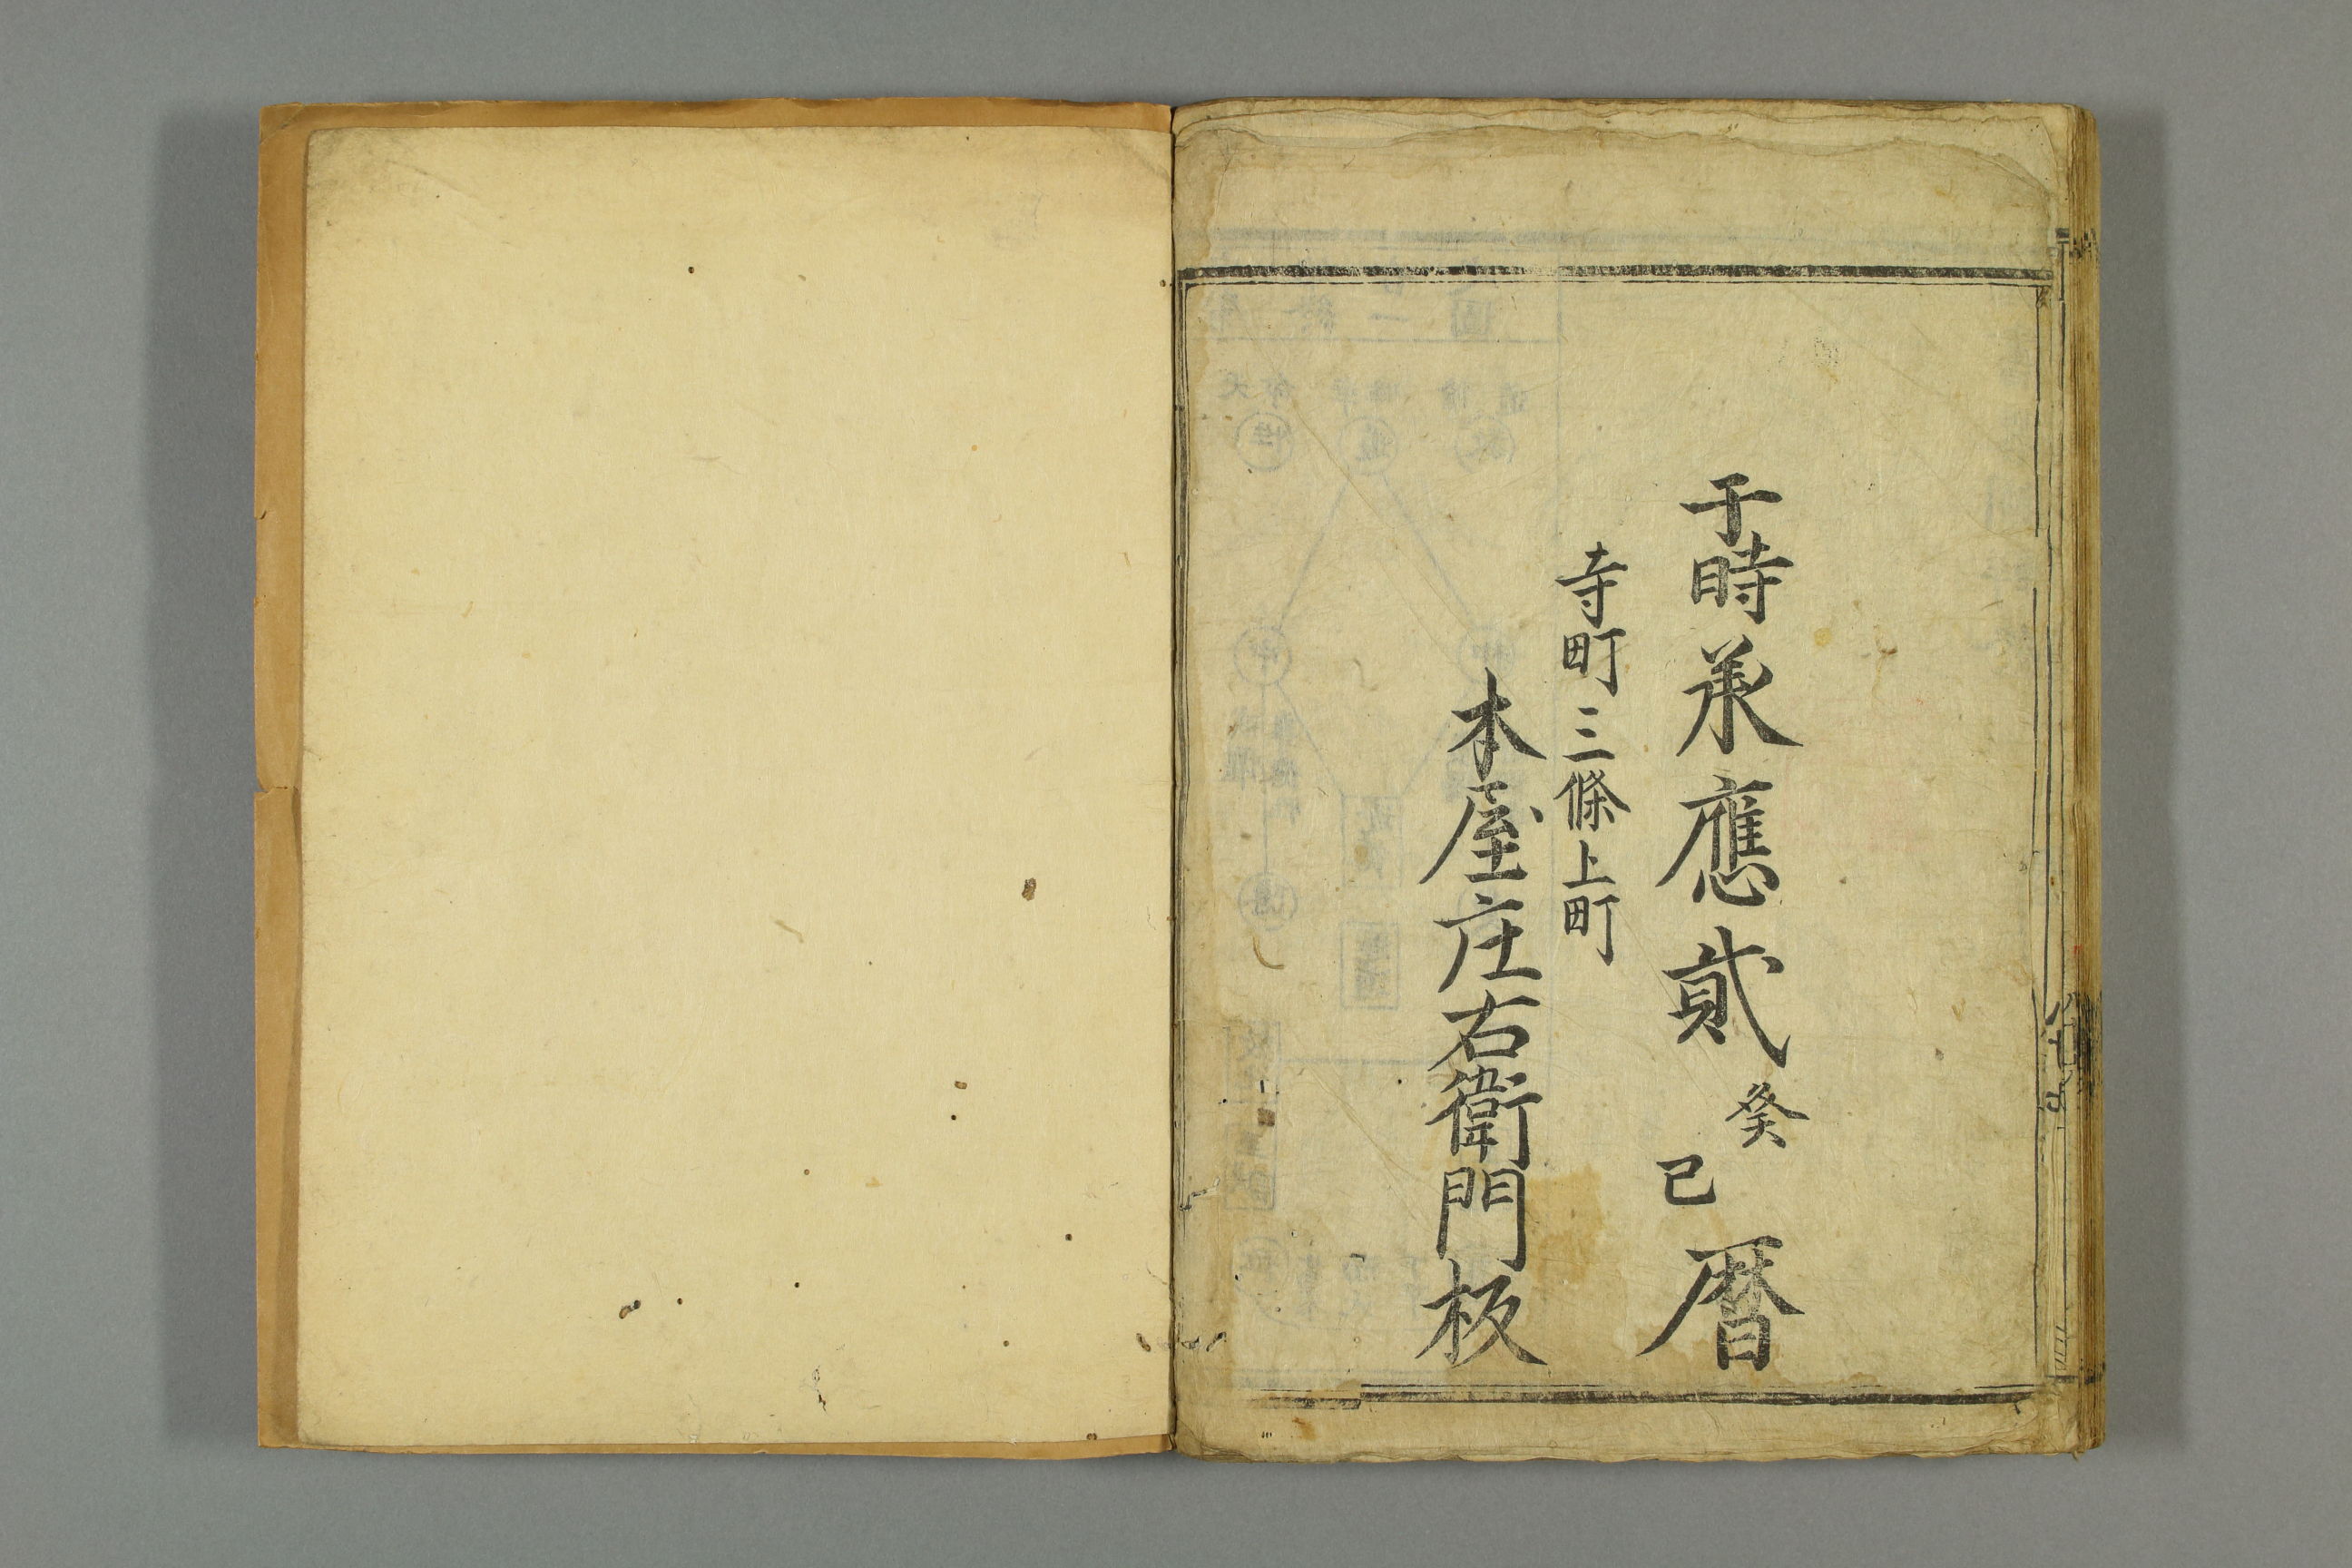 于時承應貳癸巳暦
寺町三條上町
本屋庄右衛門板